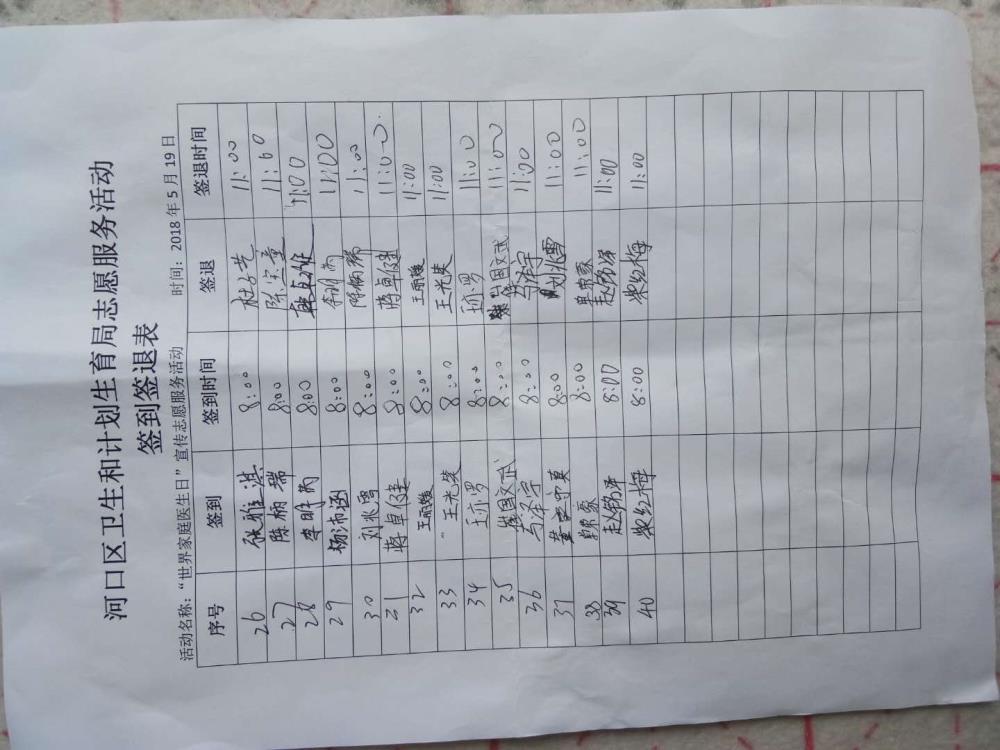 河口区卫生和计划生育局志愿服务活动
签到签退表
活动名称：“世界家庭医生日”宣传志愿服务活动 时间：2018年5月19日
序号 签到 签到时间 签退 签退时间
26 张雅淇 8:00 11:00
27 陈柄瑞 8:00 11:00
28 李明芮 8:00 11:00
29 杨沛涵 8:00 11:00
30 刘兆雪 8:00 陈柄瑞 11:00
31 蒋卓健 8:00 蒋卓健 11:00
32 王丽媛 8:00 王丽媛 11:00
33 王光荣 8:00 王光荣 11:00
34 8:00 11:00
35 国文武 8:00 国文武 11:00
36 马圣宇 8:00 马圣宇 11:00
37 董守英 8:00 刘兆雪 11:00
38 8:00 11:00
39 赵锦泽 8:00 赵锦泽 11:00
40 柴红梅 8:00 柴红梅 11:00